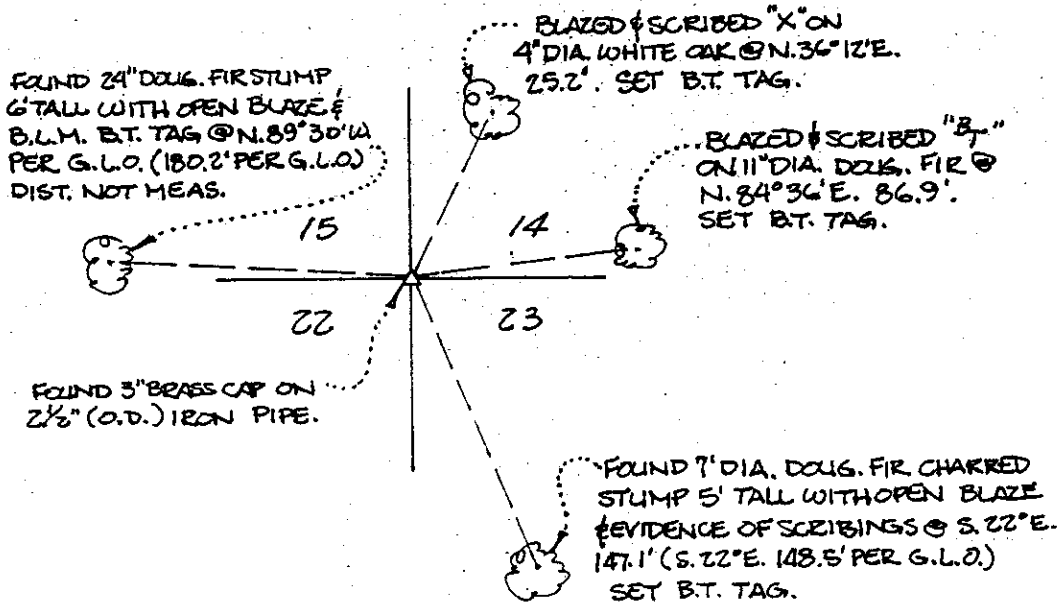 BLAZED & SCRIBED "X" ON
4" DIA. WHITE OAK @ N.36°12'E.
25.2'. SET B.T. TAG.
FOUND 24" DOUG. FIR STUMP
6' TALL WITH OPEN BLAZE &
B.L.M. B.T. TAG @ N.89°30'W
PER G.L.O. (180.2' PER G.L.O.)
DIST. NOT MEAS.
BLAZED & SCRIBED "BT"
ON 11" DIA. DOUG. FIR @
N.84°36'E. 86.9'.
SET B.T. TAG.
15 14
22 23
FOUND 3" BRASS CAP ON
2½" (O.D.) IRON PIPE.
FOUND 7' DIA. DOUG. FIR CHARRED
STUMP 5' TALL WITH OPEN BLAZE
& EVIDENCE OF SCRIBINGS @ S.22°E.
147.1' (S.22°E. 148.5' PER G.L.O.)
SET B.T. TAG.